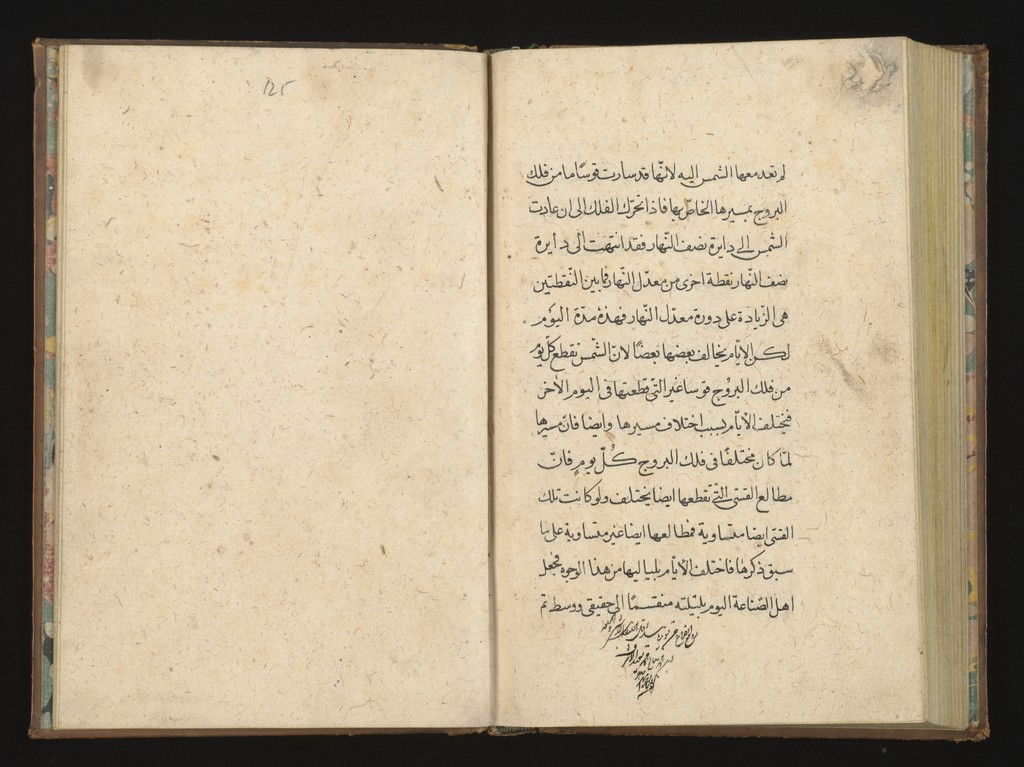 لم تعد معها الشمس اليه لانّها قد سارت قوسًا ما من فلك
البروج بمسيرها الخاص بها فاذا تحرّك الفلك الى ان عادت
الشمس الى دايرة نصف النّهار فقد انتهت الى دايرة
نصف النّهار نقطة اخرى من معدّل النّهار فما بين النّقطتين
هى الزّيادة على دورة معدّل النّهار فهذه مدّة اليوم
لكن الايّام يخالف بعضها بعضًا لانّ الشّمس تقطع كلّ يوم
من فلك البروج قوسا غير التى قطعتها فى اليوم الآخر
فيختلف الأيّام بسبب اختلاف مسيرها وايضا فانّ مسيرها
لمّا كان مختلفًا فى فلك البروج كُلّ يومٍ فانّ
مطالع القسّى الّتى تقطعها ايضا يختلف ولو كانت تلك
القسّى ايضا متساوية فمطالعها ايضا غير متساوية على ما
سبق ذكرها فاختلف الأيّام بلياليها من هذا الوجوه فجعل
اهل الصّناعة اليوم بليلته منقسمًا الى حقيقى ووسط تم
125